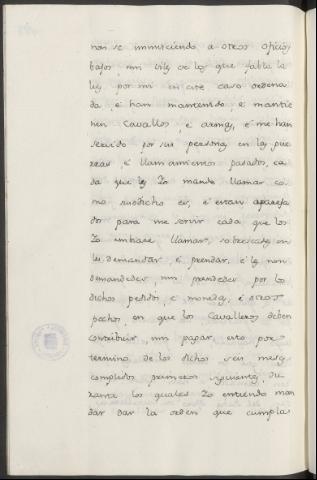 non se inmisciendo a otros oficios
bajos, nin viles de los que fabla la
ley por mi en este caso ordena-
da, é han mantenido, é mantie
nen Cavallos, é armas, é me han
servido por sus personas en las gue
rras, é llamamientos pasados, ca
da que les Yo mandé llamar, co
mo susdicho es, é estan apareja
dos para me servir cada que los
Yo embiase llamar, sobreseades en
les demandar, é prendar, é les non
demandedes, nin prendedes por los
dichos pedidos, é monedas, é otros
pechos, en que los Cavalleros deben
contribuir, nin pagar, esto por
termino de los dichos seis meses
complidos primeros siguientes, du
rante los quales Yo entiendo man
dar dar la orden que cumpla